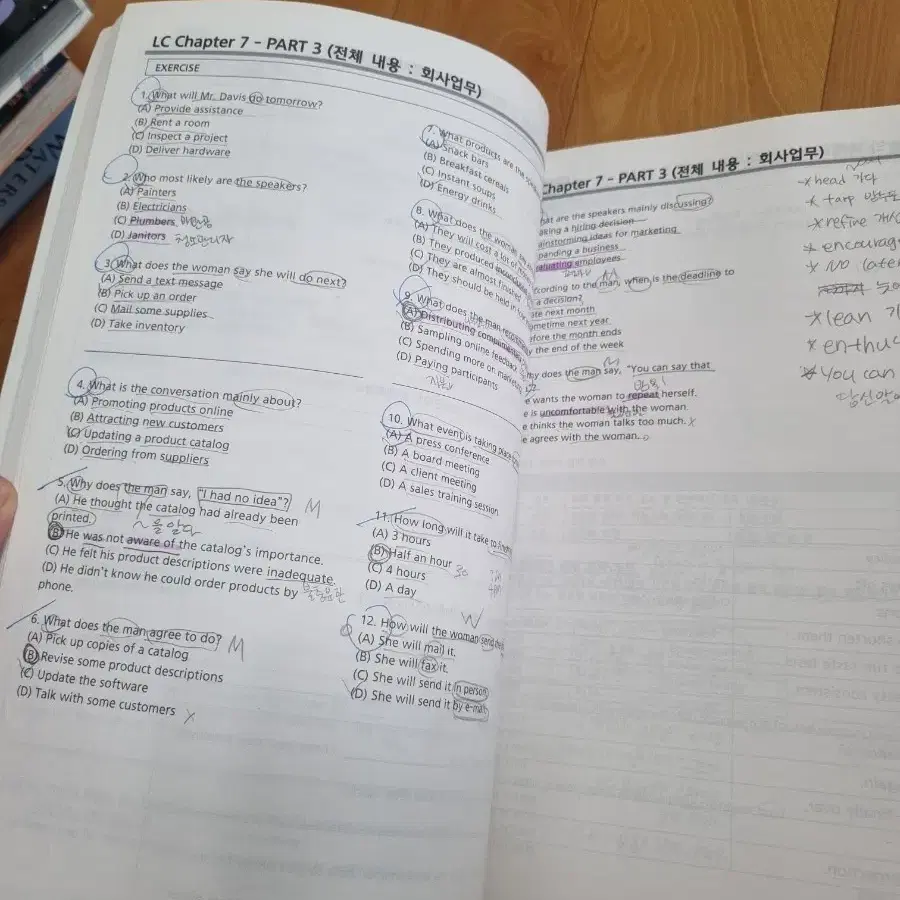 LC Chapter 7 - PART 3 (전체 내용 : 회사업무)
EXERCISE
1. What will Mr. Davis do tomorrow?
(A) Provide assistance
(B) Rent a room
(C) Inspect a project
(D) Deliver hardware
2. Who most likely are the speakers?
(A) Painters
(B) Electricians
(C) Plumbers
(D) Janitors
3. What does the woman say she will do next?
(A) Send a text message
(B) Pick up an order
(C) Mail some supplies
(D) Take inventory
4. What is the conversation mainly about?
(A) Promoting products online
(B) Attracting new customers
(C) Updating a product catalog
(D) Ordering from suppliers
5. Why does the man say, "I had no idea"? M
(A) He thought the catalog had already been
printed.
~을 알다
(B) He was not aware of the catalog's importance.
(C) He felt his product descriptions were inadequate.
(D) He didn't know he could order products by
phone.
6. What does the man agree to do? M
(A) Pick up copies of a catalog
(B) Revise some product descriptions
(C) Update the software
(D) Talk with some customers
7. What products are the
(A) Snack bars
(B) Breakfast cereals
(C) Instant soups
(D) Energy drinks
8. What does the woman
(A) They will cost a lot
(B) They produced
(C) They are almost finished
(D) They should be held
9. What does the man
(A) Distributing
(B) Sampling online feedback
(C) Spending more on
(D) Paying participants
10. What event is taking place
(A) A press conference
(B) A board meeting
(C) A client meeting
(D) A sales training session
11. How long will it take to
(A) 3 hours
(B) Half an hour 30
(C) 4 hours
(D) A day
W
12. How will the woman send
(A) She will mail it.
(B) She will fax it.
(C) She will send it in person
(D) She will send it by e-mail
Chapter 7 - PART 3 (전체 내용 : 회사업무)
at are the speakers mainly discussing?
aking a hiring decision
ainstorming ideas for marketing
panding a business
aluating employees
cording to the man, when is the deadline to
a decision?
ate next month
ometime next year
efore the month ends
y the end of the week
hy does the man say, "You can say that
e wants the woman to repeat herself.
e is uncomfortable with the woman.
e thinks the woman talks too much.
e agrees with the woman.
head 가다
refine
encourag
NO later
lean
enthu
You can